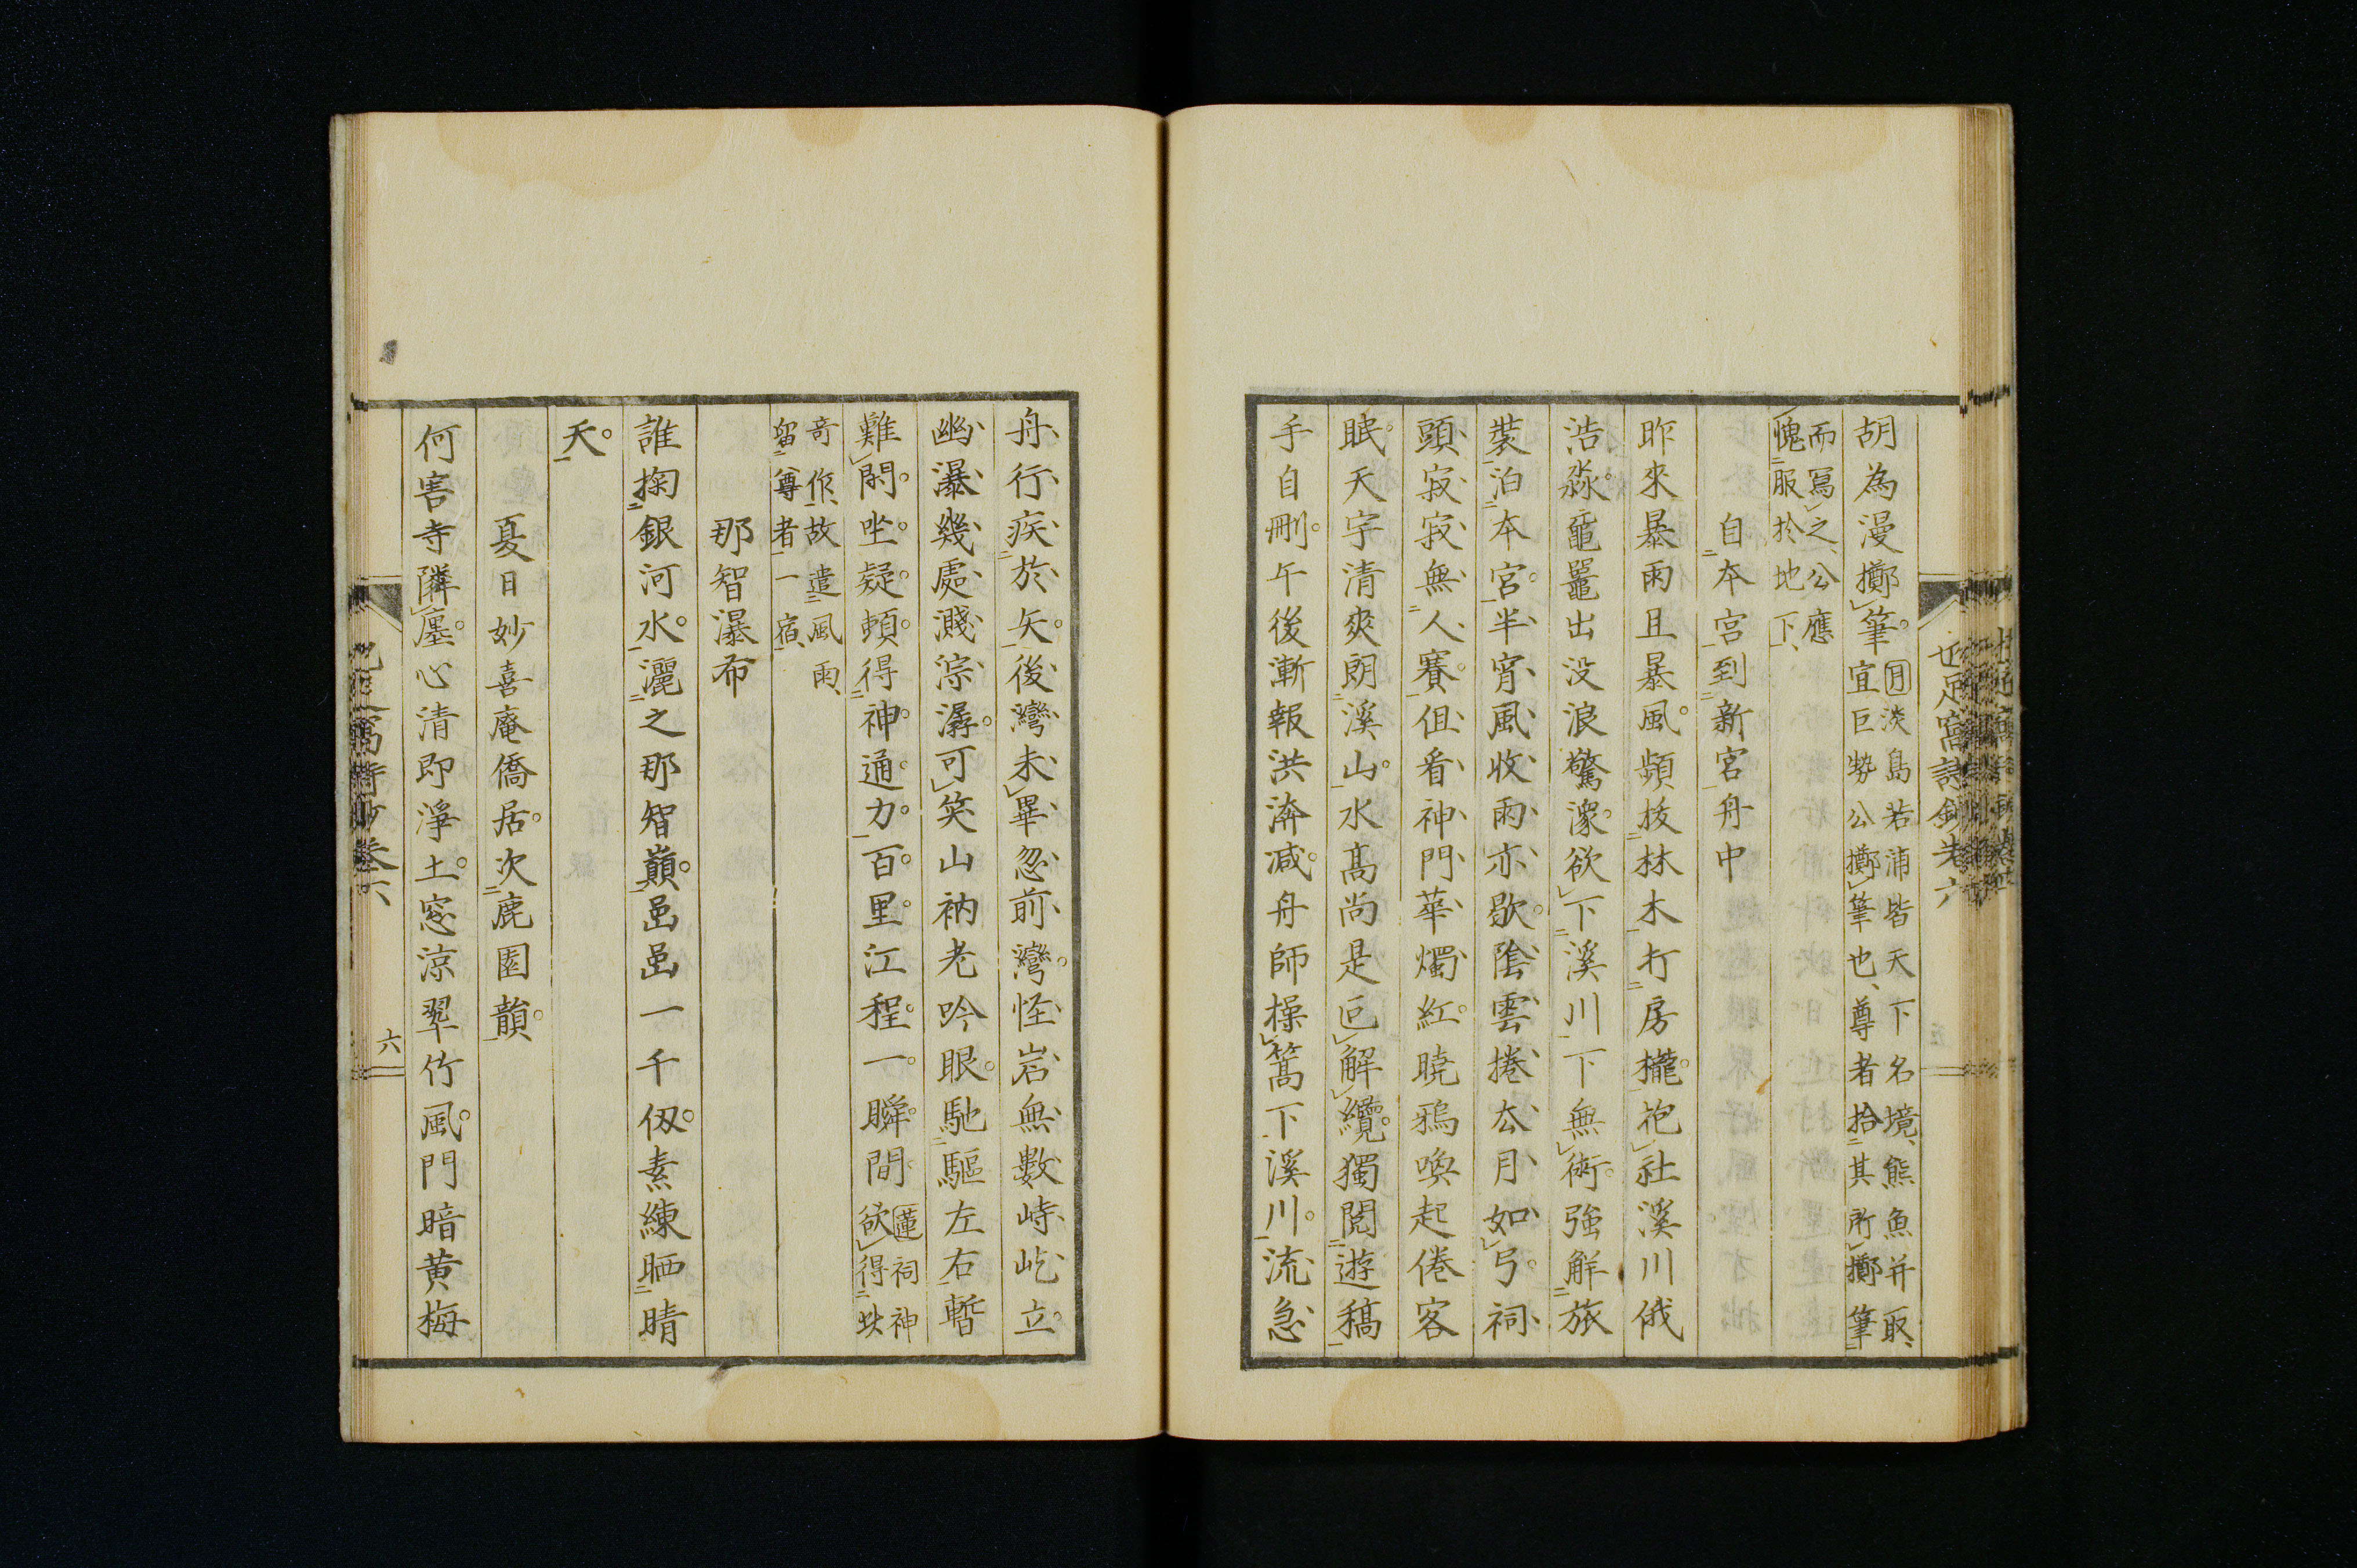 胡為漫擲筆月淡島若浦皆天下名境熊魚并取
宜巨勢公擲筆也尊者拾其所擲筆
而寫之公應
愧服於地下
自本宮到新宮舟中
昨來暴雨且暴風頻拔林木打房櫳祀社溪川俄
浩淼黿鼉出没浪驚濛欲下溪川下無術強解旅
裝泊本宮半宵風收雨亦歇陰雲捲去月如弓祠
頭寂寂無人賽但看神門華燭紅曉鴉喚起倦客
眠天宇清爽朗溪山水高尚是叵解纜獨閱遊稿
手自刪午後漸報洪濤減舟師操篙下溪川流急
舟行疾於矢後灣未畢忽前灣怪岩無數峙屹立
幽瀑幾處濺淙潺可笑山衲老吟眼馳驅左右暫
難閑坐疑頼得神通力百里江程一瞬間蓮祠神
欲得此
奇作故遣風雨
留尊者一宿
那智瀑布
誰掬銀河水灑之那智巔邑邑一千仭素練晒晴
天
夏日妙喜庵僑居次鹿園韻
何害寺隣廛心清即淨土窓涼翠竹風門暗黄梅
六